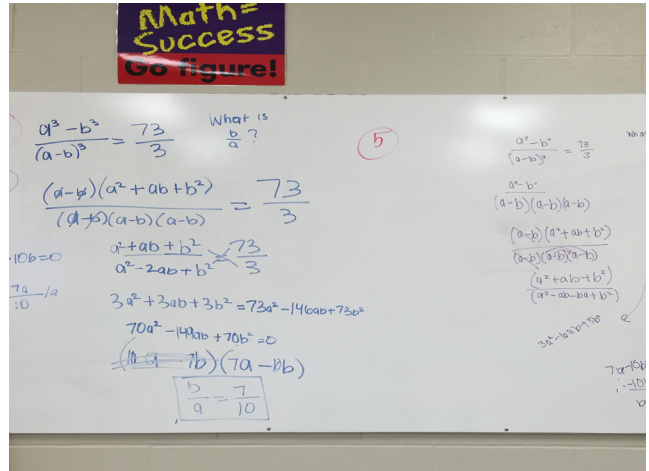 Math=
Success
Go figure!
a³ - b³ / (a-b)³ = 73/3
What is b/a ?
(a-b)(a² + ab + b²) / (a-b)(a-b)(a-b) = 73/3
a² + ab + b² / a² - 2ab + b² = 73/3
3a² + 3ab + 3b² = 73a² - 146ab + 73b²
70a² - 149ab + 70b² = 0
(10a - 7b)(7a - 10b)
b/a = 7/10
10b=0
7a/10 /a
5
a³ - b³ / (a-b)³ = 73/3
a³ - b³ / (a-b)(a-b)(a-b)
(a-b)(a² + ab + b²) / (a-b)(a-b)(a-b)
(a² + ab + b²) / (a² - ab - ba + b²)
7a-10b